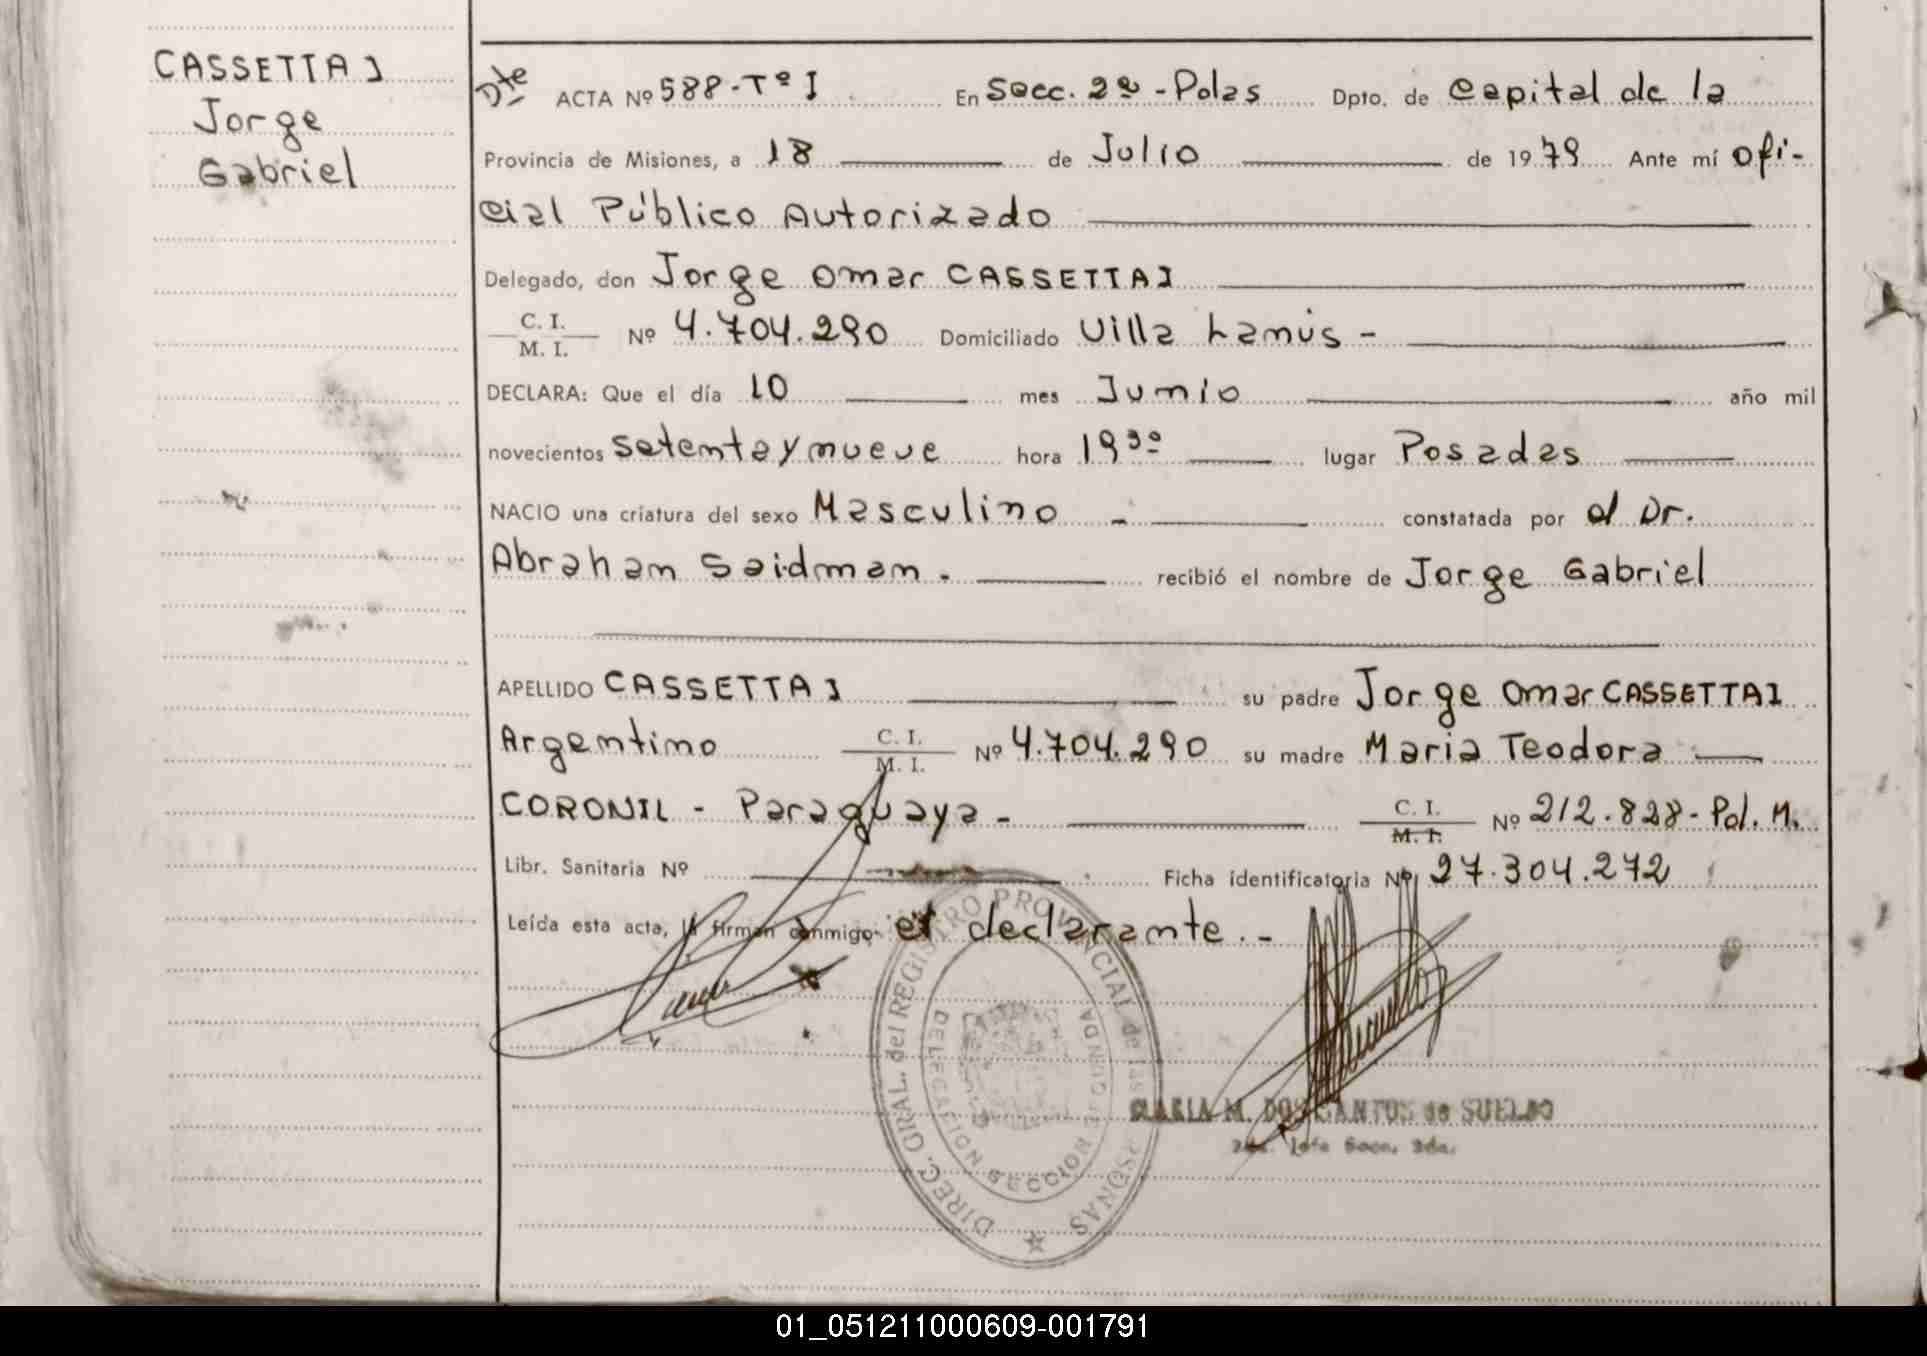 CASSETTAI
Jorge
Gabriel
Dte ACTA Nº 588-Tº I En Secc. 2ª - Pdas Dpto. de Capital de la
Provincia de Misiones, a 18 de Julio de 1979 Ante mí ofi-
cial Público Autorizado
Delegado, don Jorge Omar CASSETTAI
C. I.
M. I. Nº 4.704.290 Domiciliado Villa Lanús -
DECLARA: Que el día 10 mes Junio año mil
novecientos setenta y nueve hora 19³⁰ lugar Posadas
NACIO una criatura del sexo Masculino - constatada por el Dr.
Abraham Saidman. recibió el nombre de Jorge Gabriel
APELLIDO CASSETTAI su padre Jorge Omar CASSETTAI
Argentino C. I.
M. I. Nº 4.704.290 su madre Maria Teodora
CORONIL - Paraguaya - C. I.
M. I. Nº 212.828 - Pol. M.
Libr. Sanitaria Nº Ficha identificatoria Nº 27.304.272
Leída esta acta, la firman conmigo el declarante.-
DIREC. GRAL. del REGISTRO PROVINCIAL de las PERSONAS
DELEGACION SECCION SEGUNDA
MARIA M. DOS SANTOS de SUELDO
Jefe Secc. 2da.
01_051211000609-001791